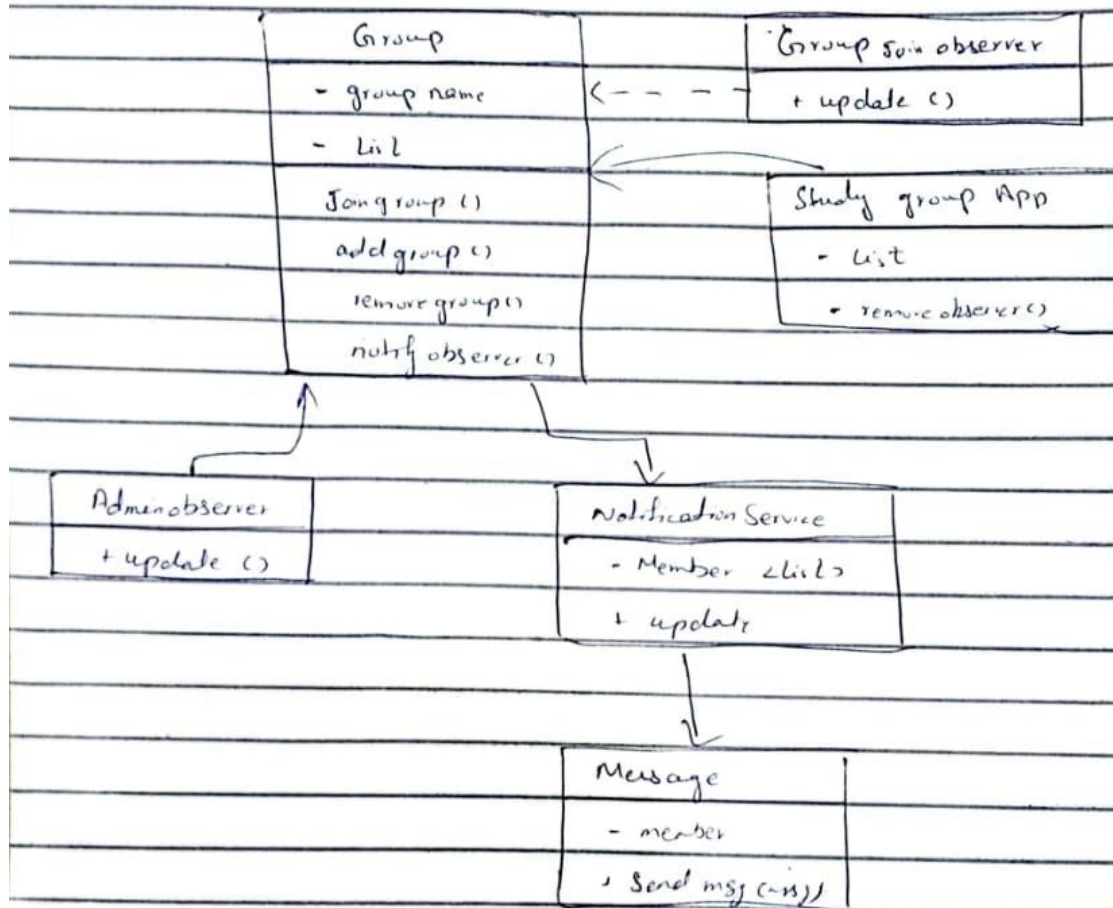 Group
- group name
- List
Join group ()
add group ()
remove group ()
notify observer ()
Group Join observer
+ update ()
Study group App
- List
- remove observer ()
Adminobserver
+ update ()
Notification Service
- Member <List>
+ update
Message
- member
+ Send msg (msg)